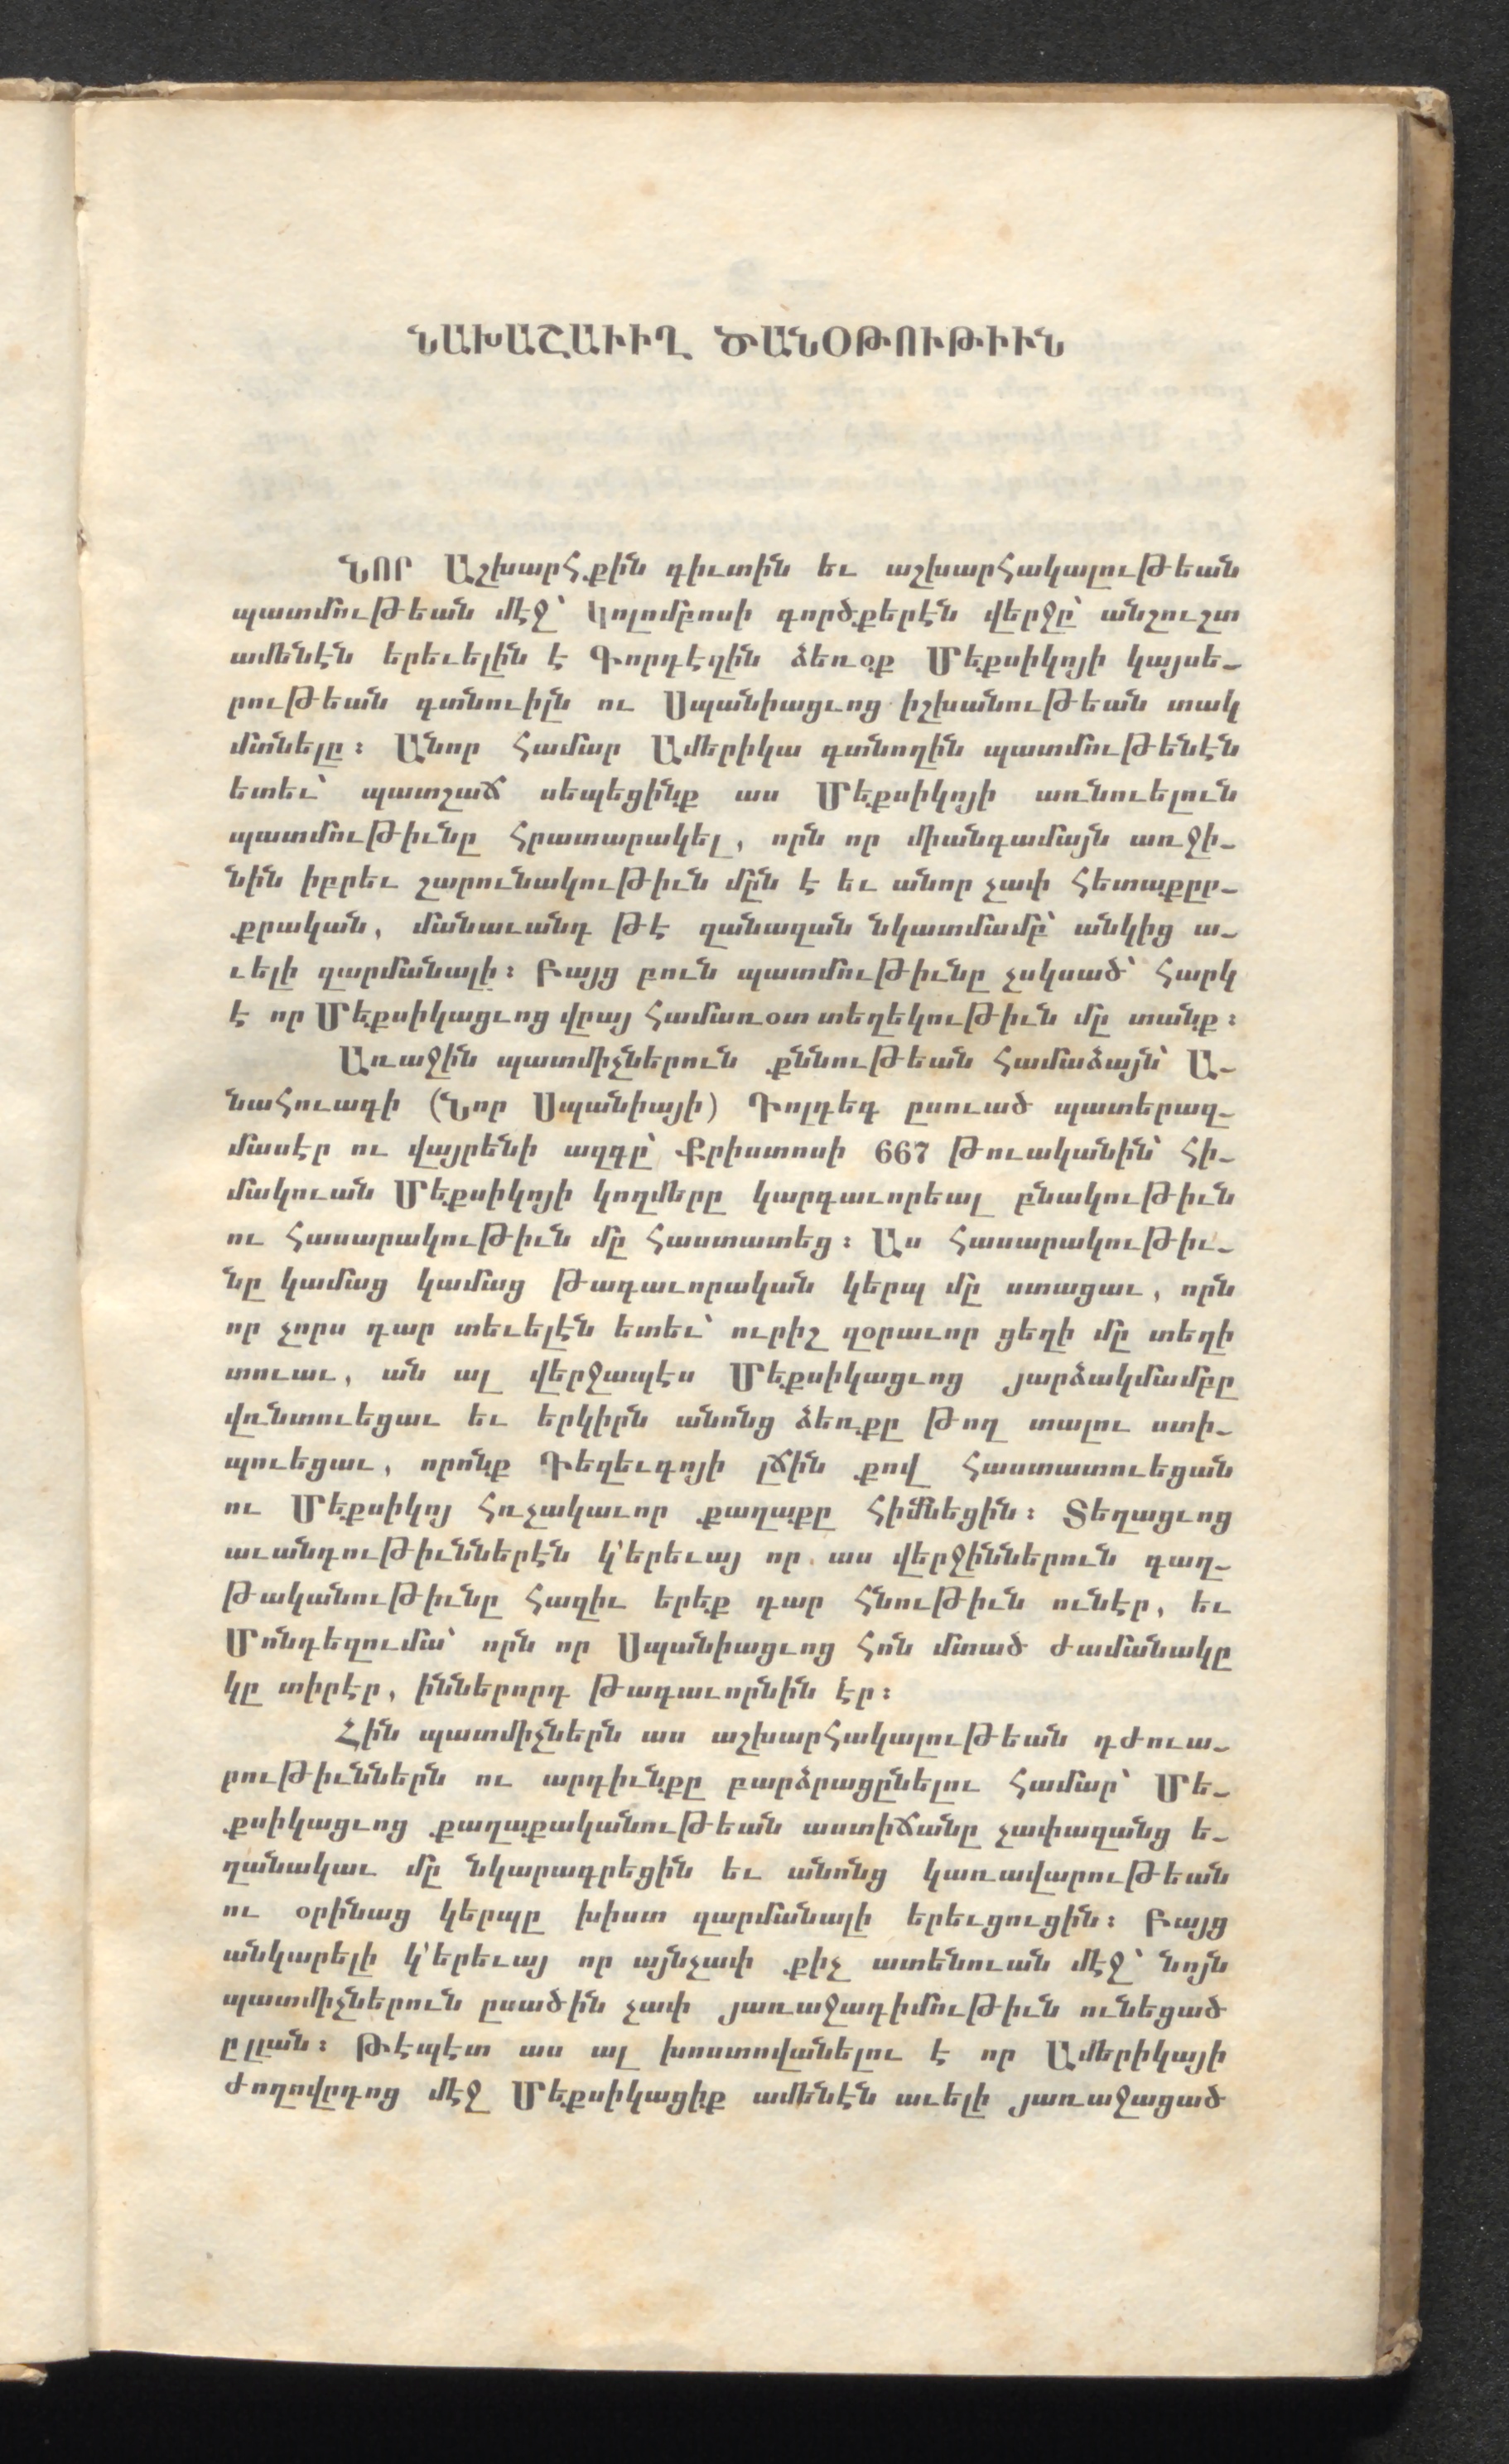 ՆԱԽԱՇԱՒԻՂ ԾԱՆՕԹՈՒԹԻՒՆ
ՆՈՐ Աշխարհքին գիւտին եւ աշխարհակալութեան
պատմութեան մէջ՝ Կոլոմբոսի գործքերէն վերջը՝ անշուշտ
ամենէն երեւելին է Գորդէզին ձեռօք Մեքսիկոյի կայսե-
րութեան գտնուիլն ու Սպանիացւոց իշխանութեան տակ
մտնելը։ Անոր համար Ամերիկա գտնողին պատմութենէն
ետեւ՝ պատշաճ սեպեցինք աս Մեքսիկոյի առնուելուն
պատմութիւնը հրատարակել, որն որ միանգամայն առջի-
նին իբրեւ շարունակութիւն մըն է եւ անոր չափ հետաքրք-
քրական, մանաւանդ թէ զանազան նկատմամբ՝ անկից ա-
ւելի զարմանալի։ Բայց բուն պատմութիւնը չսկսած՝ հարկ
է որ Մեքսիկացւոց վրայ համառօտ տեղեկութիւն մը տանք։
Առաջին պատմիչներուն քննութեան համաձայն՝ Ա-
նահուագի (Նոր Սպանիայի) Դոլդեգ ըսուած պատերազ-
մասէր ու վայրենի ազգը՝ Քրիստոսի 667 թուականին՝ հի-
մակուան Մեքսիկոյի կողմերը կարգաւորեալ բնակութիւն
ու հասարակութիւն մը հաստատեց։ Աս հասարակութիւ-
նը կամաց կամաց թագաւորական կերպ մը ստացաւ, որն
որ չորս դար տեւելէն ետեւ՝ ուրիշ զօրաւոր ցեղի մը տեղի
տուաւ, ան ալ վերջապէս Մեքսիկացւոց յարձակմամբը
վռնտուեցաւ եւ երկիրն անոնց ձեռքը թող տալու ստի-
պուեցաւ, որոնք Դեզեւգոյի լճին քով հաստատուեցան
ու Մեքսիկոյ հռչակաւոր քաղաքը հիմնեցին։ Տեղացւոց
աւանդութիւններէն կ՚երեւայ որ աս վերջիններուն գաղ-
թականութիւնը հազիւ երեք դար հնութիւն ունէր, եւ
Մոնդեզումա՝ որն որ Սպանիացւոց հոն մտած ժամանակը
կը տիրէր, իններորդ թագաւորնին էր։
Հին պատմիչներն աս աշխարհակալութեան դժուա-
րութիւններն ու արդիւնքը բարձրացընելու համար՝ Մե-
քսիկացւոց քաղաքականութեան աստիճանը չափազանց ե-
ղանակաւ մը նկարագրեցին եւ անոնց կառավարութեան
ու օրինաց կերպը խիստ զարմանալի երեւցուցին։ Բայց
անկարելի կ՚երեւայ որ այնչափ քիչ ատենուան մէջ՝ նոյն
պատմիչներուն ըսածին չափ յառաջադիմութիւն ունեցած
ըլլան։ Թէպէտ աս ալ խոստովանելու է որ Ամերիկայի
ժողովրդոց մէջ Մեքսիկացիք ամենէն աւելի յառաջացած